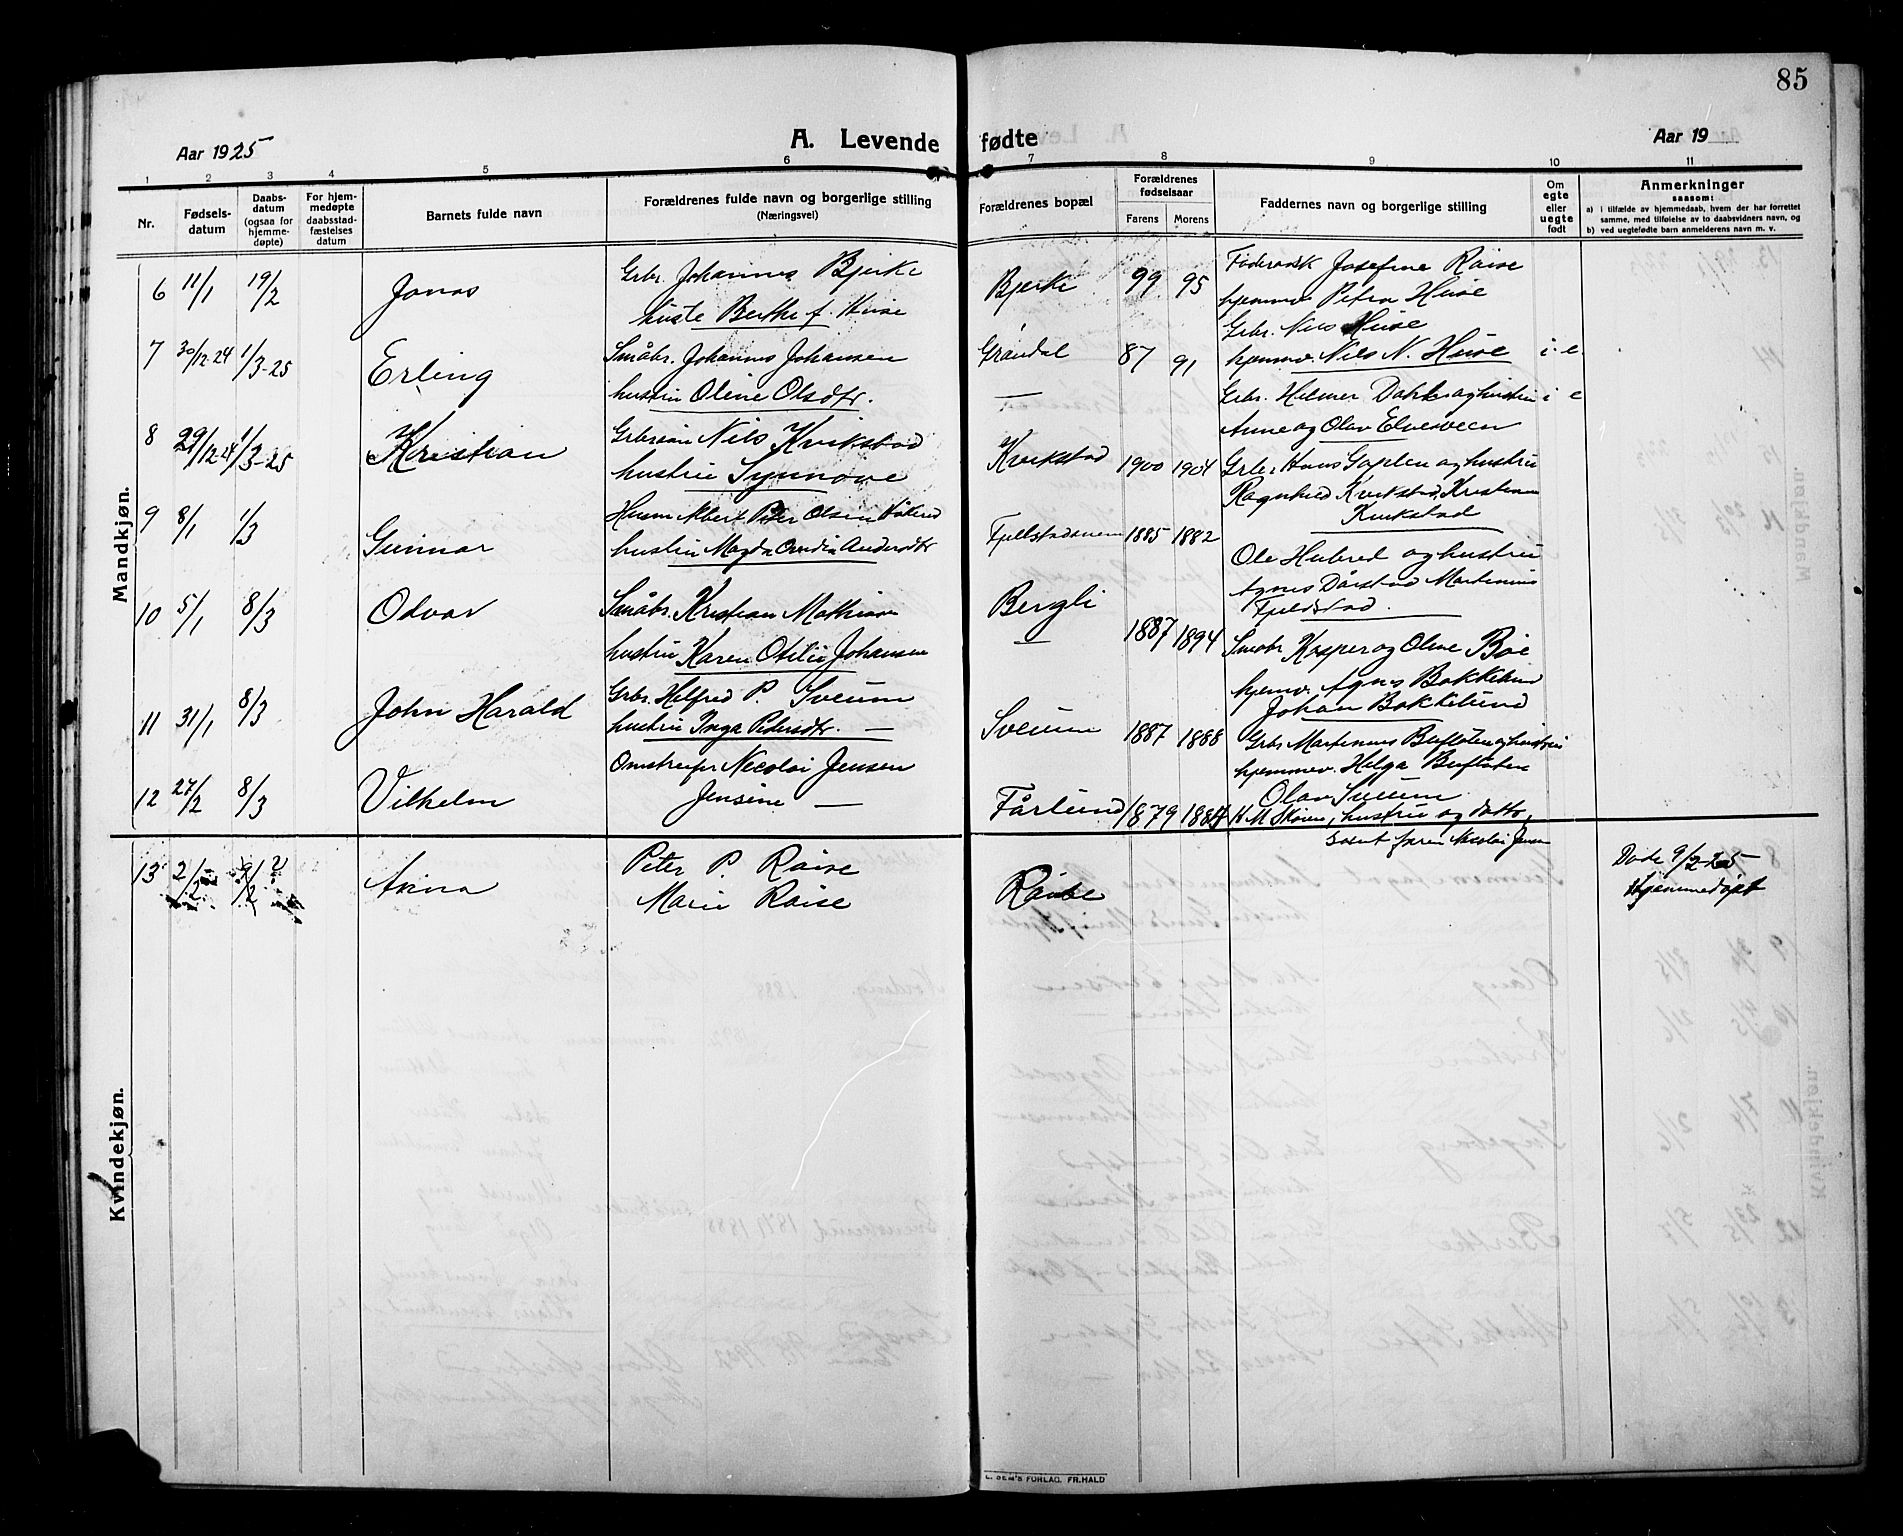 85
Aar 1925
A. Levende fødte
Aar 19
1 2 3 4 5 6 7 8 9 10 11
Nr.
Fødsels-
datum
Daabs-
datum
(ogsaa for
hjemme-
døpte)
For hjem-
medøpte
daabsstad-
fæstelses
datum
Barnets fulde navn
Forældrenes fulde navn og borgerlige stilling
(Næringsvei)
Forældrenes bopæl
Forældrenes
fødselsaar
Farens Morens
Faddernes navn og borgerlige stilling
Om
egte
eller
uegte
født
Anmerkninger
saasom:
a) i tilfælde av hjemmedaab, hvem der har forrettet
samme, med tilføielse av to daabsvidners navn, og
b) ved uegtefødte barn anmelderens navn m. v.
Mandkjøn.
6 11/1 19/2 Jonas
Grbr. Johannes Bjerke
huste Berthe f. Huse
Bjerke 99 95
Føderaadsk Josefine Raise
hjemmv Petra Huse
Grbr. Nils Huse
hjemmv. Nils N. Huse i. e.
7 30/12-24 1/3-25 Erling
Småbr. Johannes Johansen
hustru Oline Olsdtr.
Grøndal 87 91
—
Grbr. Helmer Dakken og hustru i e
Anne og Olav Elvesveen
8 29/12 24 1/3-25 Kristian
Grbrsøn Nils Kvikstad
hustru Synnøve
Kvikstad 1900 1904
Grbr Hans Goplen og hustru
Ragnhild Kvikstad, Kristian
Kvikstad
9 8/1 1/3 Gunnar
Husm Albert Peter Olsen
hustru Magda Andersdtr
Fjellstadsveen 1885 1882
Ole Hubred og hustru
Agnes Dårstad Martinius
Fjeldstad.
10 5/1 8/3 Odvar
Småbr. Kristian Mathisen
hustru Karen Otilie Johansen
Bergli 1887 1894
—
Småbr Kasper og Oline Bøe
hjemv. Agnes Bakkelund
Johan Bakkelund
11 31/1 8/3 John Harald
Grbr. Helfred P. Sveum
hustru Inga Pedersdtr. —
Sveum 1887 1888
Grbr Martinius Bufloten og hustru
hjemmev. Helga Bufloten
Olav Sveum
12 27/2 8/3 Vilhelm
Omstreifer Nicolai Jensen
Jensine —
Fårlund 1879 1884
K M Skøien, hustru og datter,
samt faren Nicolai Jensen
Kvindekjøn.
13 2/2 9/2 Anna
Peter P. Raise
Marie Raise
Raise
Døde 9/2 25
Hjemmedøpt
E. SEM'S FORLAG. FR.HALD